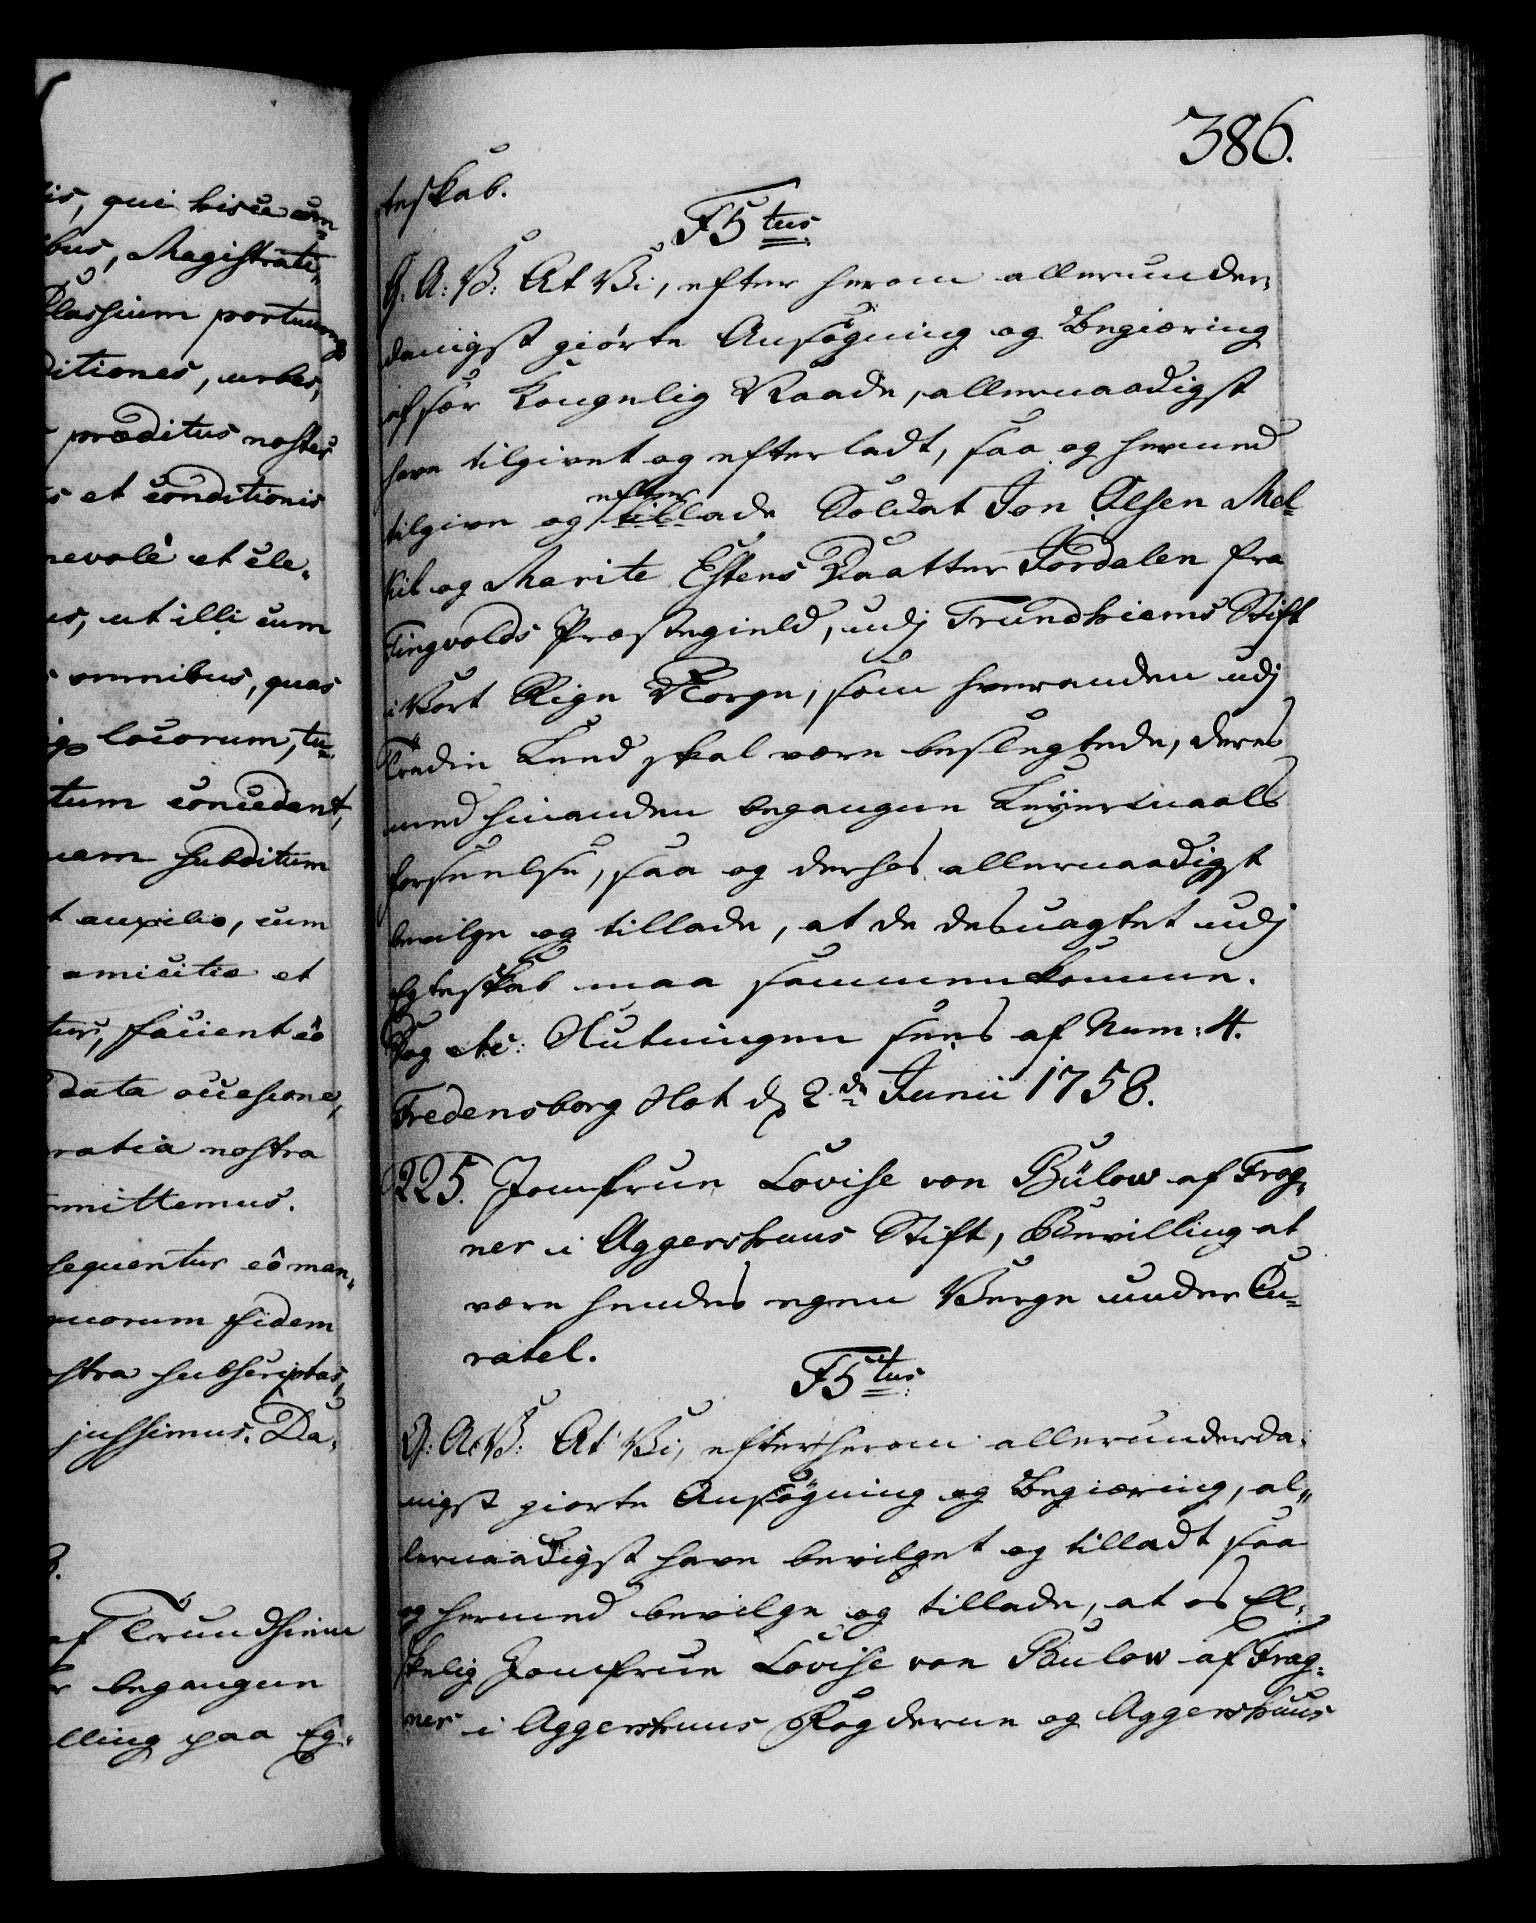 tis, qui hisce com-
bus, Magistrati-
Classium portuum
ditiones, urbes,
præditus noster
s et conditionis
nevolè et cle-
us, ut illi cum
omnibus, quas
locorum, tu-
tum concedant,
uam subditum
t auxilio, cum
amicitia et
tur, facient eò
data occasione,
ratia nostra
mittemus.
sequentur eô man-
quorum fidem
stra subscriptas,
jussimus. Da-
af Trundhiem
begangen
lling paa Eg-
386.
teskab.
F5tus
G: A: V: At Vi, efter herom allerunder-
danigst giørte Ansøgning og Begiæring
af sær Kongelig Naade, allernaadigst
have tilgivet og efterladt, saa og hermed
tilgive og efterlade Soldat Jon Olsen Mel-
kil og Marite Estens Daatter Jordalen fra
Tingvolds Præstegield, udj Trundhiems Stift
i Vort Rige Norge, som hverandre udj
Tredie Leed skal være beslegtede, deres
med hinanden begangne Leyermaals
forseelse, saa og derhos allernaadigst
bevilge og tillade, at de desuagtet udj
Egteskab maa sammenkomme.
Dog etc: Slutningen sees af Num: 4.
Fredensborg Slot d 2de Junii 1758.
225. Jomfrue Lovise von Bülow af Frog-
ner i Aggershuus Stift, Bevilling at
være hendes egen Verge under Cu-
ratel.
F5tus
G: A: V: At Vi, efter herom allerunderda-
nigst giorte Ansøgning og Begiæring, al-
lernaadigst have bevilget og tilladt saa
og hermed bevilge og tillade, at os El-
skelig Jomfrue Lovise von Bulow af Frog-
ner i Aggershuus Fogderie og Aggershuus